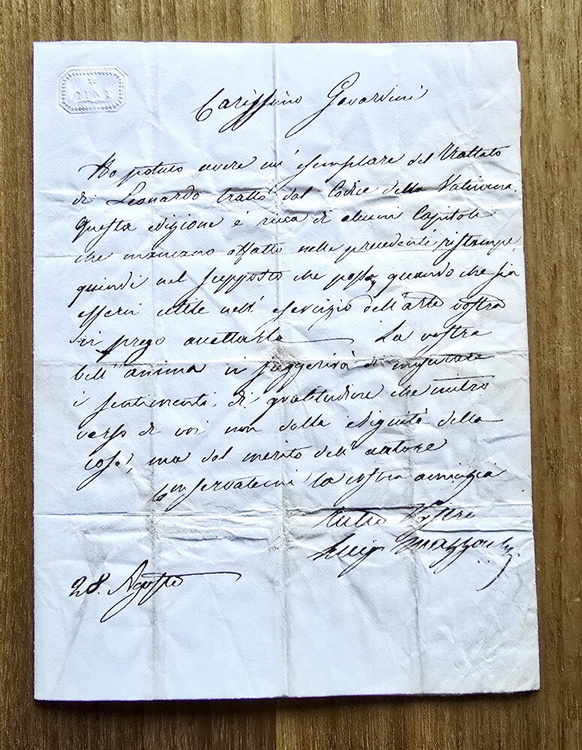 Carissimo Gavardini
Ho potuto avere un' esemplare del Trattato
di Leonardo tratto dal Codice della Vaticana.
Questa edizione é ricca di alcuni Capitoli
che mancano affatto nelle precedenti ristampe
quindi nel supposto che possa quando che sia
esservi utile nell' esercizio dell'arte vostra
vi prego accettarla La vostra
bell' anima vi suggerirà di misurare
i sentimenti di gratitudine che nutro
verso di voi non dalla esiguità della
cosa, ma dal merito dell' autore
Conservatemi la vostra amicizia
tutto Vostro
Luigi
28. Agosto